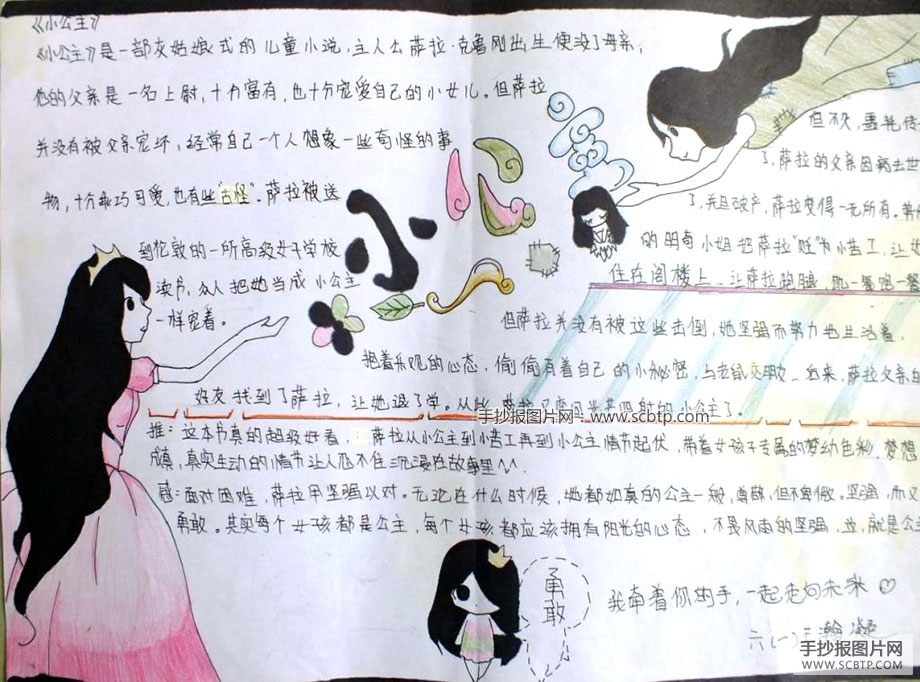 《小公主》
《小公主》是一部灰姑娘式的儿童小说,主人公萨拉·克鲁刚出生便没了母亲,
她的父亲是一名上尉,十分富有,也十分宠爱自己的小女儿。但萨拉
并没有被父亲宠坏,经常自己一个人想象一些奇怪的事
物,十分乖巧可爱,也有些"古怪"。萨拉被送
到伦敦的一所高级女子学校
读书,众人把她当成小公主
一样宠着。
小公主
但不久,噩耗传
了,萨拉的父亲因病去世
了,并且破产,萨拉变得一无所有。
的明奇小姐把萨拉"贬"为小苦工,让
住在阁楼上…让萨拉跑腿,
但萨拉并没有被这些击倒,她坚强而努力地生活着,
抱着乐观的心态,偷偷有着自己的小秘密,与老鼠交朋友…后来,萨拉父亲的
好友找到了萨拉,让她退了学。从此,萨拉又变回光芒四射的小公主了。
手抄报图片网 - www.scbtp.com
推:这本书真的超级好看,萨拉从小公主到小苦工再到小公主情节起伏,带着女孩子专属的梦幻色彩,梦想
成真,真实生动的情节让人忍不住沉浸在故事里^^.
感:面对困难,萨拉用坚强以对。无论在什么时候,她都如真的公主一般,尊敬,但不卑微。坚强,而又
勇敢。其实每个女孩都是公主,每个女孩都应该拥有阳光的心态,不畏风雨的坚强,这,就是公
勇敢
我牵着你的手,一起走向未来♡
六(一)王瀚凝
手抄报图片网
WWW.SCBTP.COM